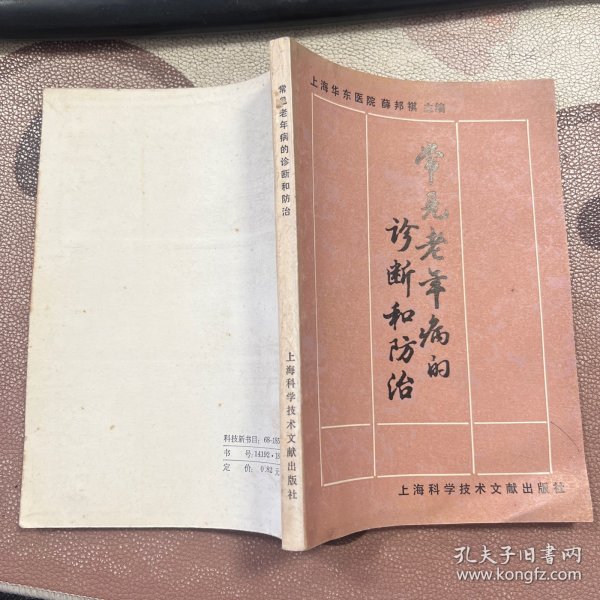 上海华东医院 薛邦祺 主编
常见老年病的
诊断和防治
上海科学技术文献出版社
常见老年病的诊断和防治
上海科学技术文献出版社
科技新书目: 68-185
书 号: 14192·18
定 价: 0.82元
孔夫子旧书网
www.kongfz.com